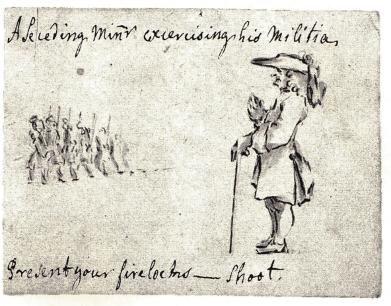 A Seceding Minr exercising his Militia
Present your firelocks — Shoot.